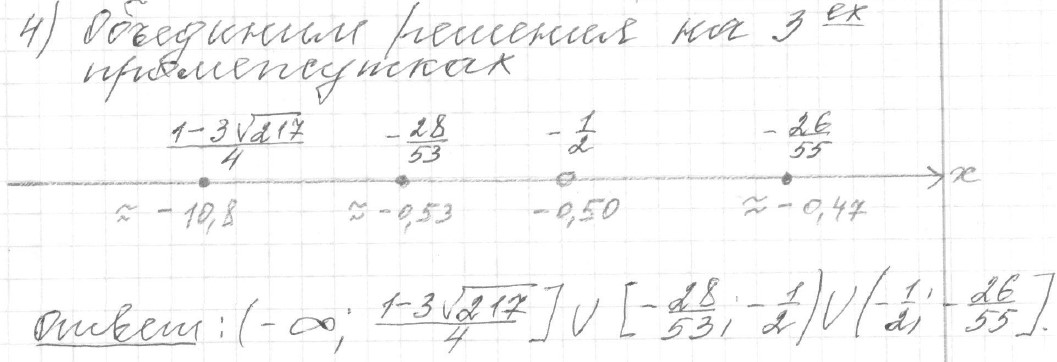 4) Объединим решения на 3 ех
промежутках
(1-3√217)/4 -28/53 -1/2 -26/55
x
≈ -10,8 ≈ -0,53 -0,50 ≈ -0,47
Ответ: (-∞; (1-3√217)/4] ∪ [-28/53; -1/2) ∪ (-1/2; -26/55].